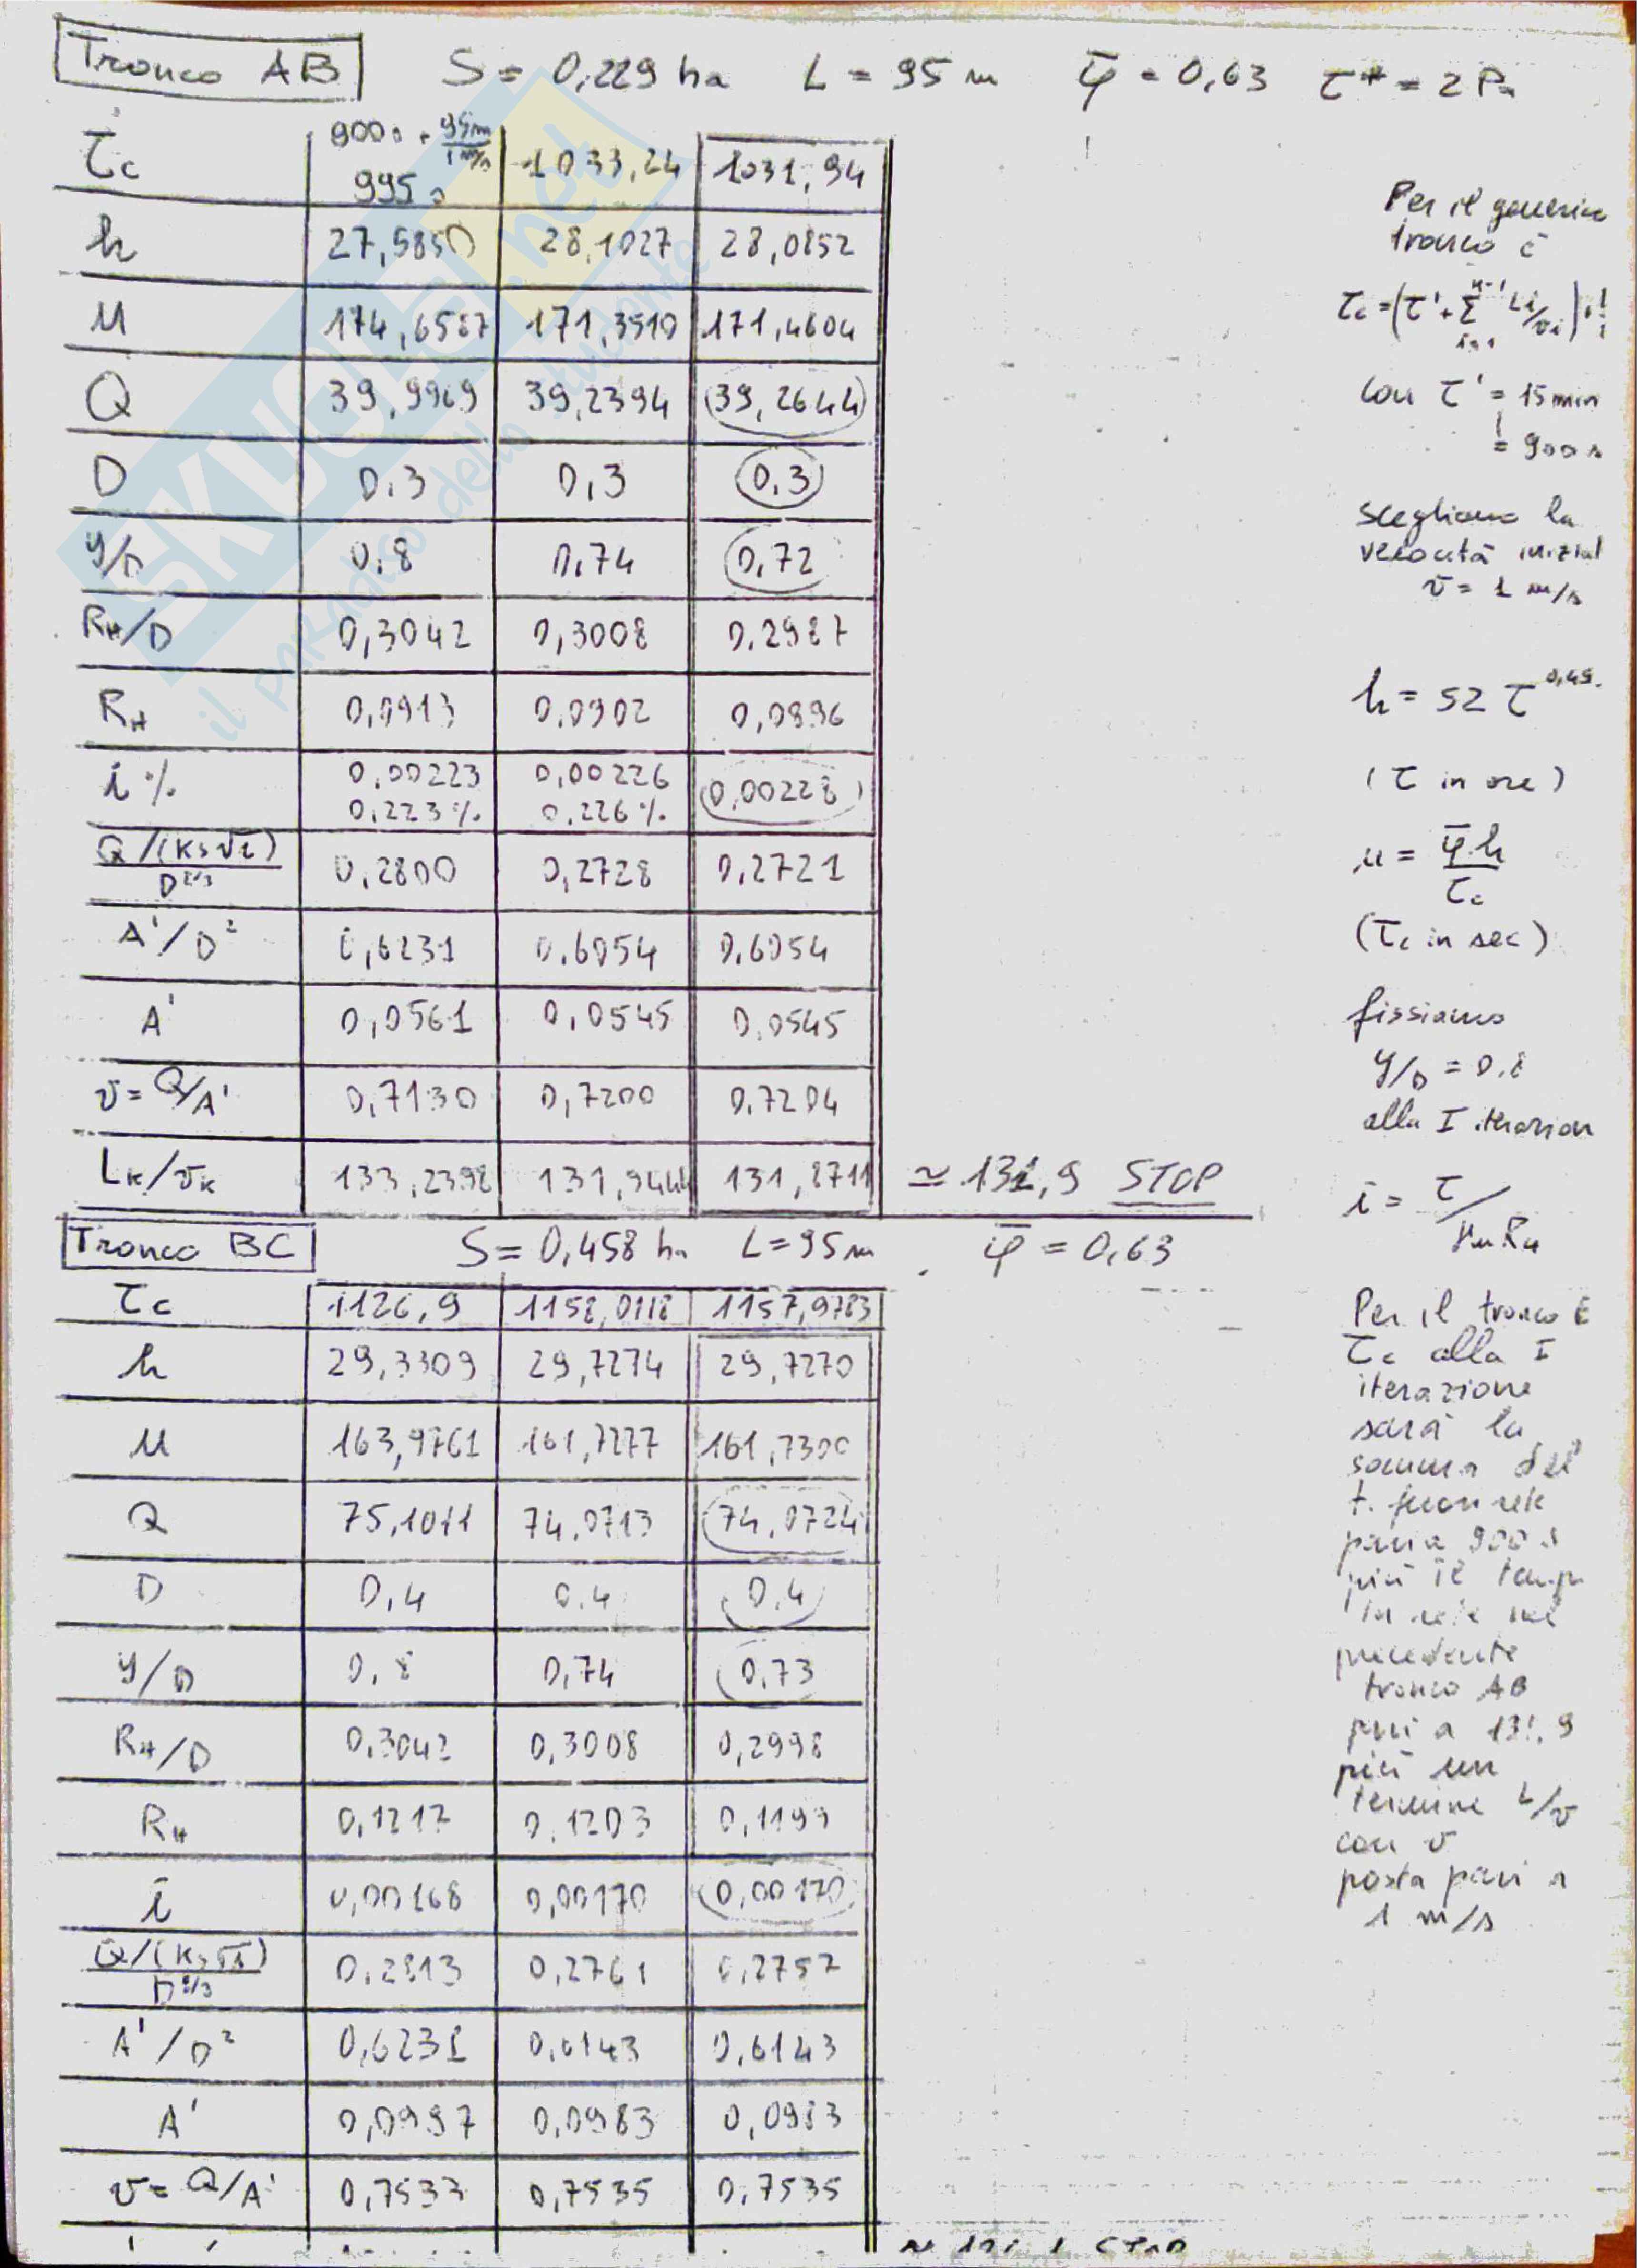 Tronco AB S = 0,229 ha L = 95 m φ̄ = 0,63 τ* = 2 Pa
τc 900s + 95m/1 m/s 995s 1033,24 1031,94
h 27,5850 28,1027 28,0852
u 174,6587 171,3510 171,4604
Q 39,9969 39,2394 39,2644
D 0,3 0,3 0,3
y/D 0,8 0,74 0,72
RH/D 0,3042 0,3008 0,2987
RH 0,0913 0,0902 0,0896
i% 0,00223 0,00226 0,00228
0,223% 0,226%
Q/(Ks√i)/D^8/3 0,2800 0,2728 0,2721
A'/D² 0,6231 0,6054 0,6054
A' 0,0561 0,0545 0,0545
v = Q/A' 0,7130 0,7200 0,7204
LK/vK 133,2398 131,9444 131,8711 ≃ 131,9 STOP
Tronco BC S = 0,458 ha L = 95 m φ̄ = 0,63
τc 1126,9 1158,0118 1157,9783
h 29,3309 29,7274 29,7270
u 163,9761 161,7277 161,7300
Q 75,1011 74,0713 74,0724
D 0,4 0,4 0,4
y/D 0,8 0,74 0,73
RH/D 0,3042 0,3008 0,2998
RH 0,1217 0,1203 0,1199
i 0,00168 0,00170 0,00170
Q/(Ks√i)/D^8/3 0,2813 0,2761 0,2757
A'/D² 0,6231 0,6143 0,6143
A' 0,0997 0,0983 0,0983
v = Q/A' 0,7533 0,7535 0,7535
Per il generico
tronco è
τc = (τ' + Σ Li/vi)
con τ' = 15 min
= 900 s
scegliamo la
velocità inizial
v = 1 m/s
h = 52 τ^0,49
(τ in ore)
u = φ̄·h/τc
(τc in sec)
fissiamo
y/D = 0,8
alla I iterazion
i = τ/γw RH
Per il tronco
τc alla I
iterazione
sarà la
somma del
t. fuori rete
pari a 900 s
più il temp
in rete nel
precedente
tronco AB
pari a 131,9
più un
termine L/v
con v
posta pari a
1 m/s
SKUOLA.net
il paradiso dello studente